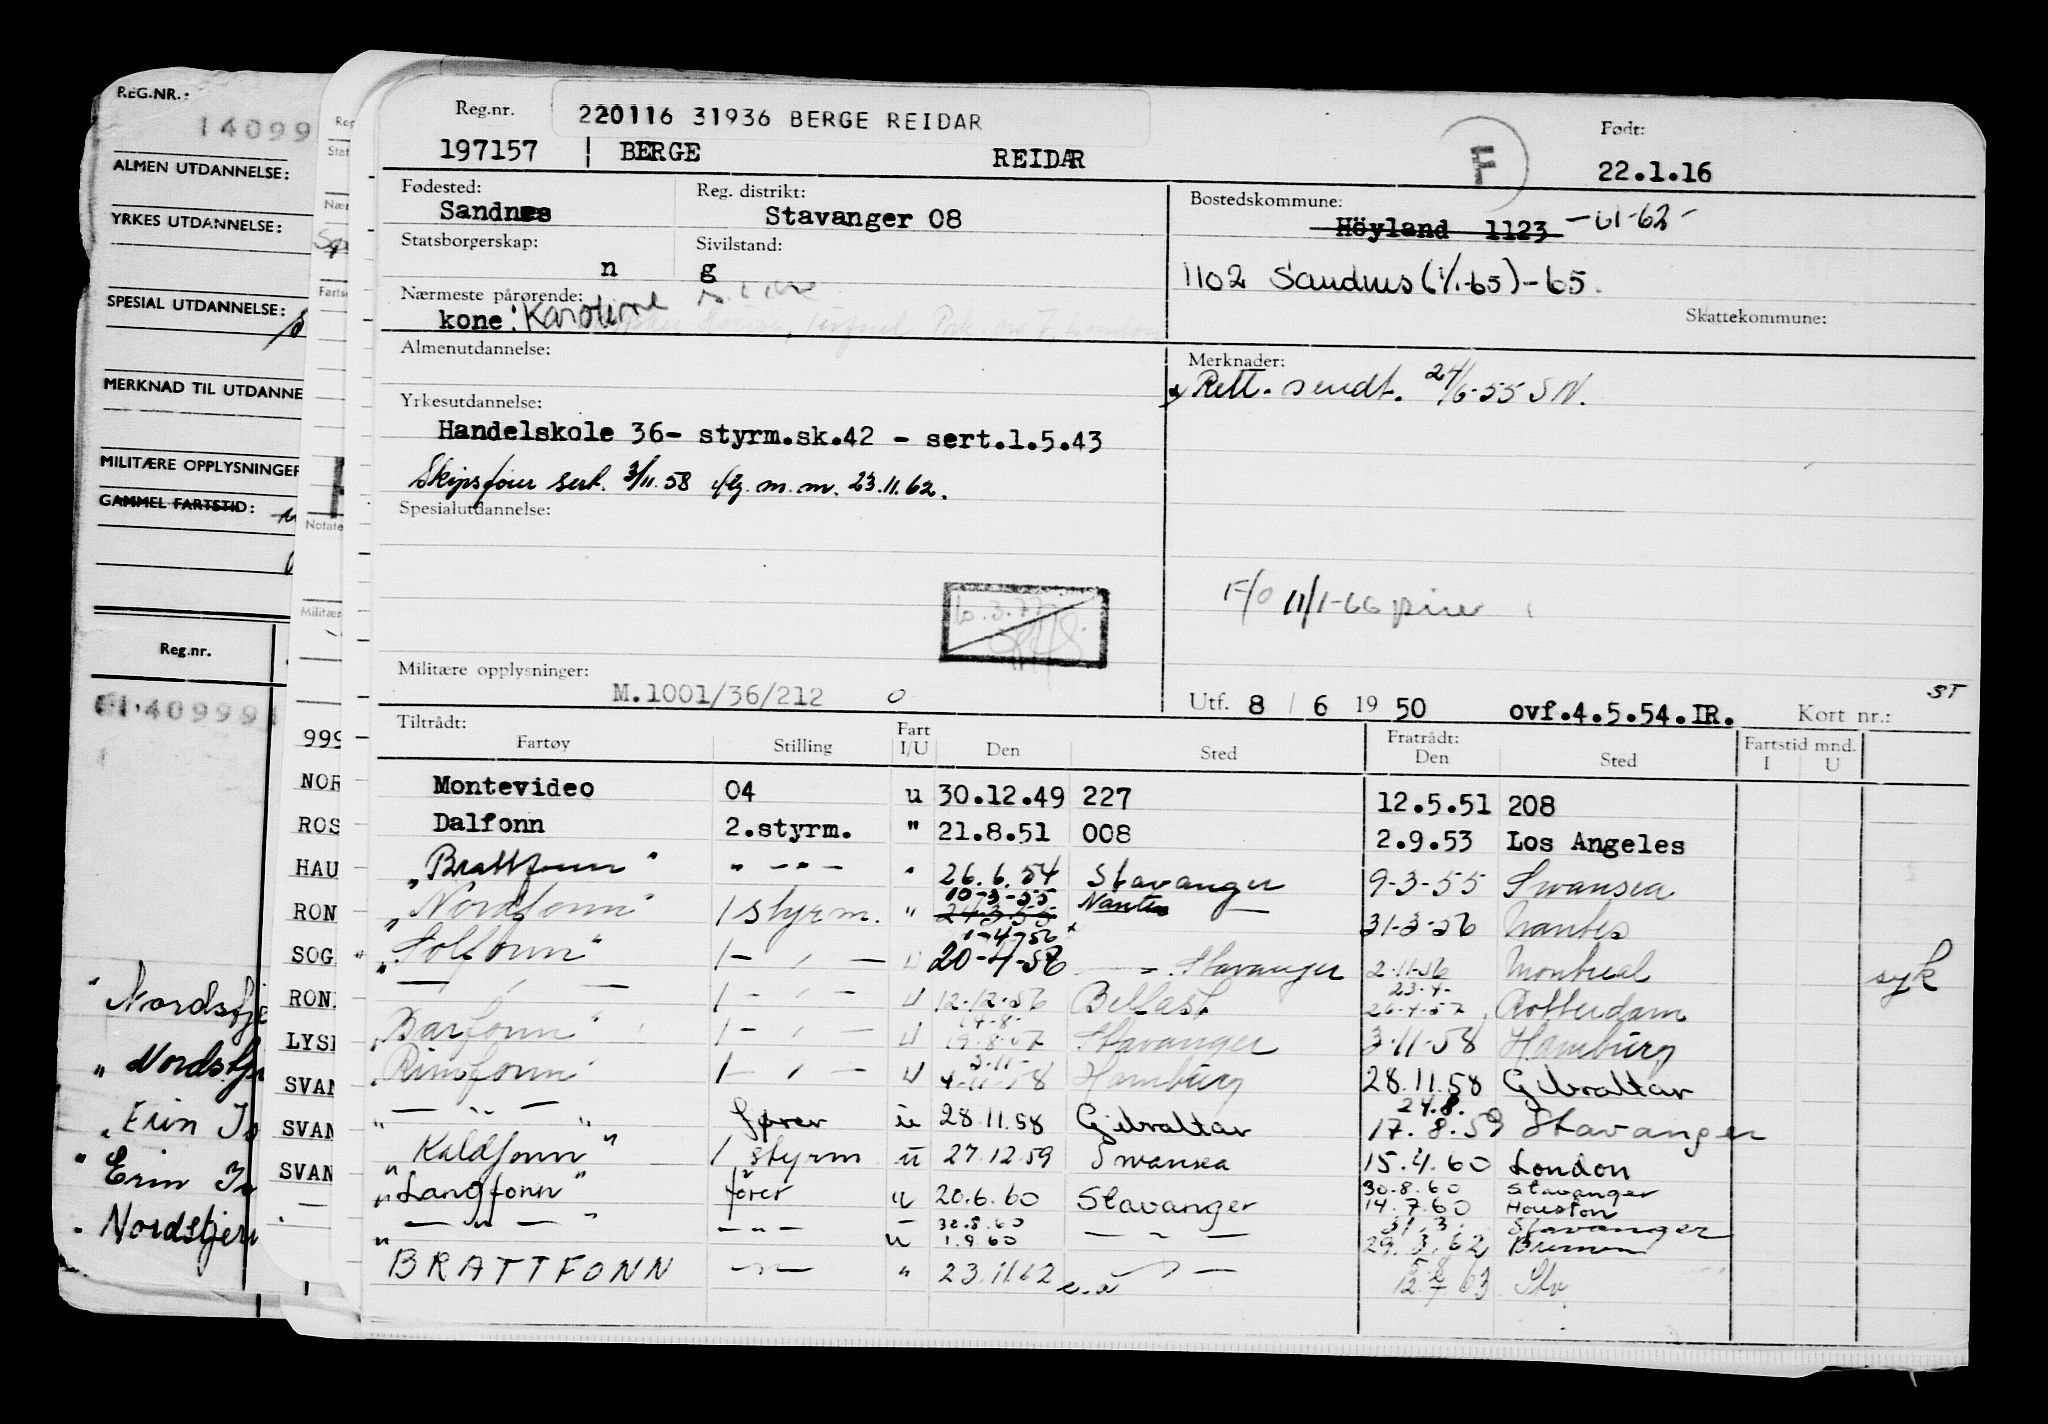 REG.NR.:
14099
ALMEN UTDANNELSE:
YRKES UTDANNELSE:
SPESIAL UTDANNELSE:
MERKNAD TIL UTDANNE
MILITÆRE OPPLYSNINGER
GAMMEL FARTSTID:
Reg.nr.
1409991
"Nordstje
"Nordstje
"Erin
"Erin
"Nordstjern
Reg
Stat
Nær
Fartse
Notate
Militær
999
NOR
ROS
HAU
RON
SOG
RON
LYSE
SVAN
SVAN
SVAN
Reg.nr. 220116 31936 BERGE REIDAR F Født:
197157 BERGE REIDAR 22.1.16
Fødested: Reg. distrikt: Bostedskommune:
Sandnes Stavanger 08 Höyland 1123 -61-62-
Statsborgerskap: Sivilstand:
n g 1102 Sandnes (1/1-65)-65.
Nærmeste pårørende: Skattekommune:
kone: Karoline
Almenutdannelse: Merknader:
Rett. sendt. 24/6-55 SN.
Yrkesutdannelse:
Handelskole 36- styrm.sk.42 - sert.1.5.43
Skipsfører sert. 3/11.58 m.m. 23.11.62.
Spesialutdannelse:
F/O 11/1-66
Militære opplysninger:
M.1001/36/212 0 Utf. 8 / 6 19 50 ovf.4.5.54.IR. Kort nr.: ST
Tiltrådt: Fart Fratrådt: Fartstid mnd.
Fartøy Stilling I/U Den Sted Den Sted I U
Montevideo 04 u 30.12.49 227 12.5.51 208
Dalfonn 2.styrm. " 21.8.51 008 2.9.53 Los Angeles
"Brattfonn" " - " - " 26.6.54 Stavanger 9-3-55 Swansea
10-3-55 Nantes
"Nordfonn" 1 styrm. " 24-3-55 — 31-3-56 Nantes
1-4-56
"Solfonn" 1 - " - u 20-4-56 Stavanger 2-11-56 Montreal syk
23-4-
— " — 1 - " - u 12-12-56 Belfast 26-4-57 Rotterdam
14-8-
"Barfonn" 1 - " - u 19-8-57 Stavanger 3-11-58 Hamburg
3-11-
"Rimfonn" 1 - " - u 4-11-58 Hamburg 28.11.58 Gibraltar
24.8.
" — " — " fører u 28.11.58 Gibraltar 17.8.59 Stavanger
"Kaldfonn" 1 styrm u 27.12.59 Swansea 15.4.60 London
30.8.60 Stavanger
"Langfonn" fører u 20.6.60 Stavanger 14.7.60 Houston
31.3. Stavanger
" — " — " — " — u 1.9.60 — " — 29.3.62 Bremen
5.8
BRATTFONN — " — " 23.11.62 — " — 12.7.63 Stv